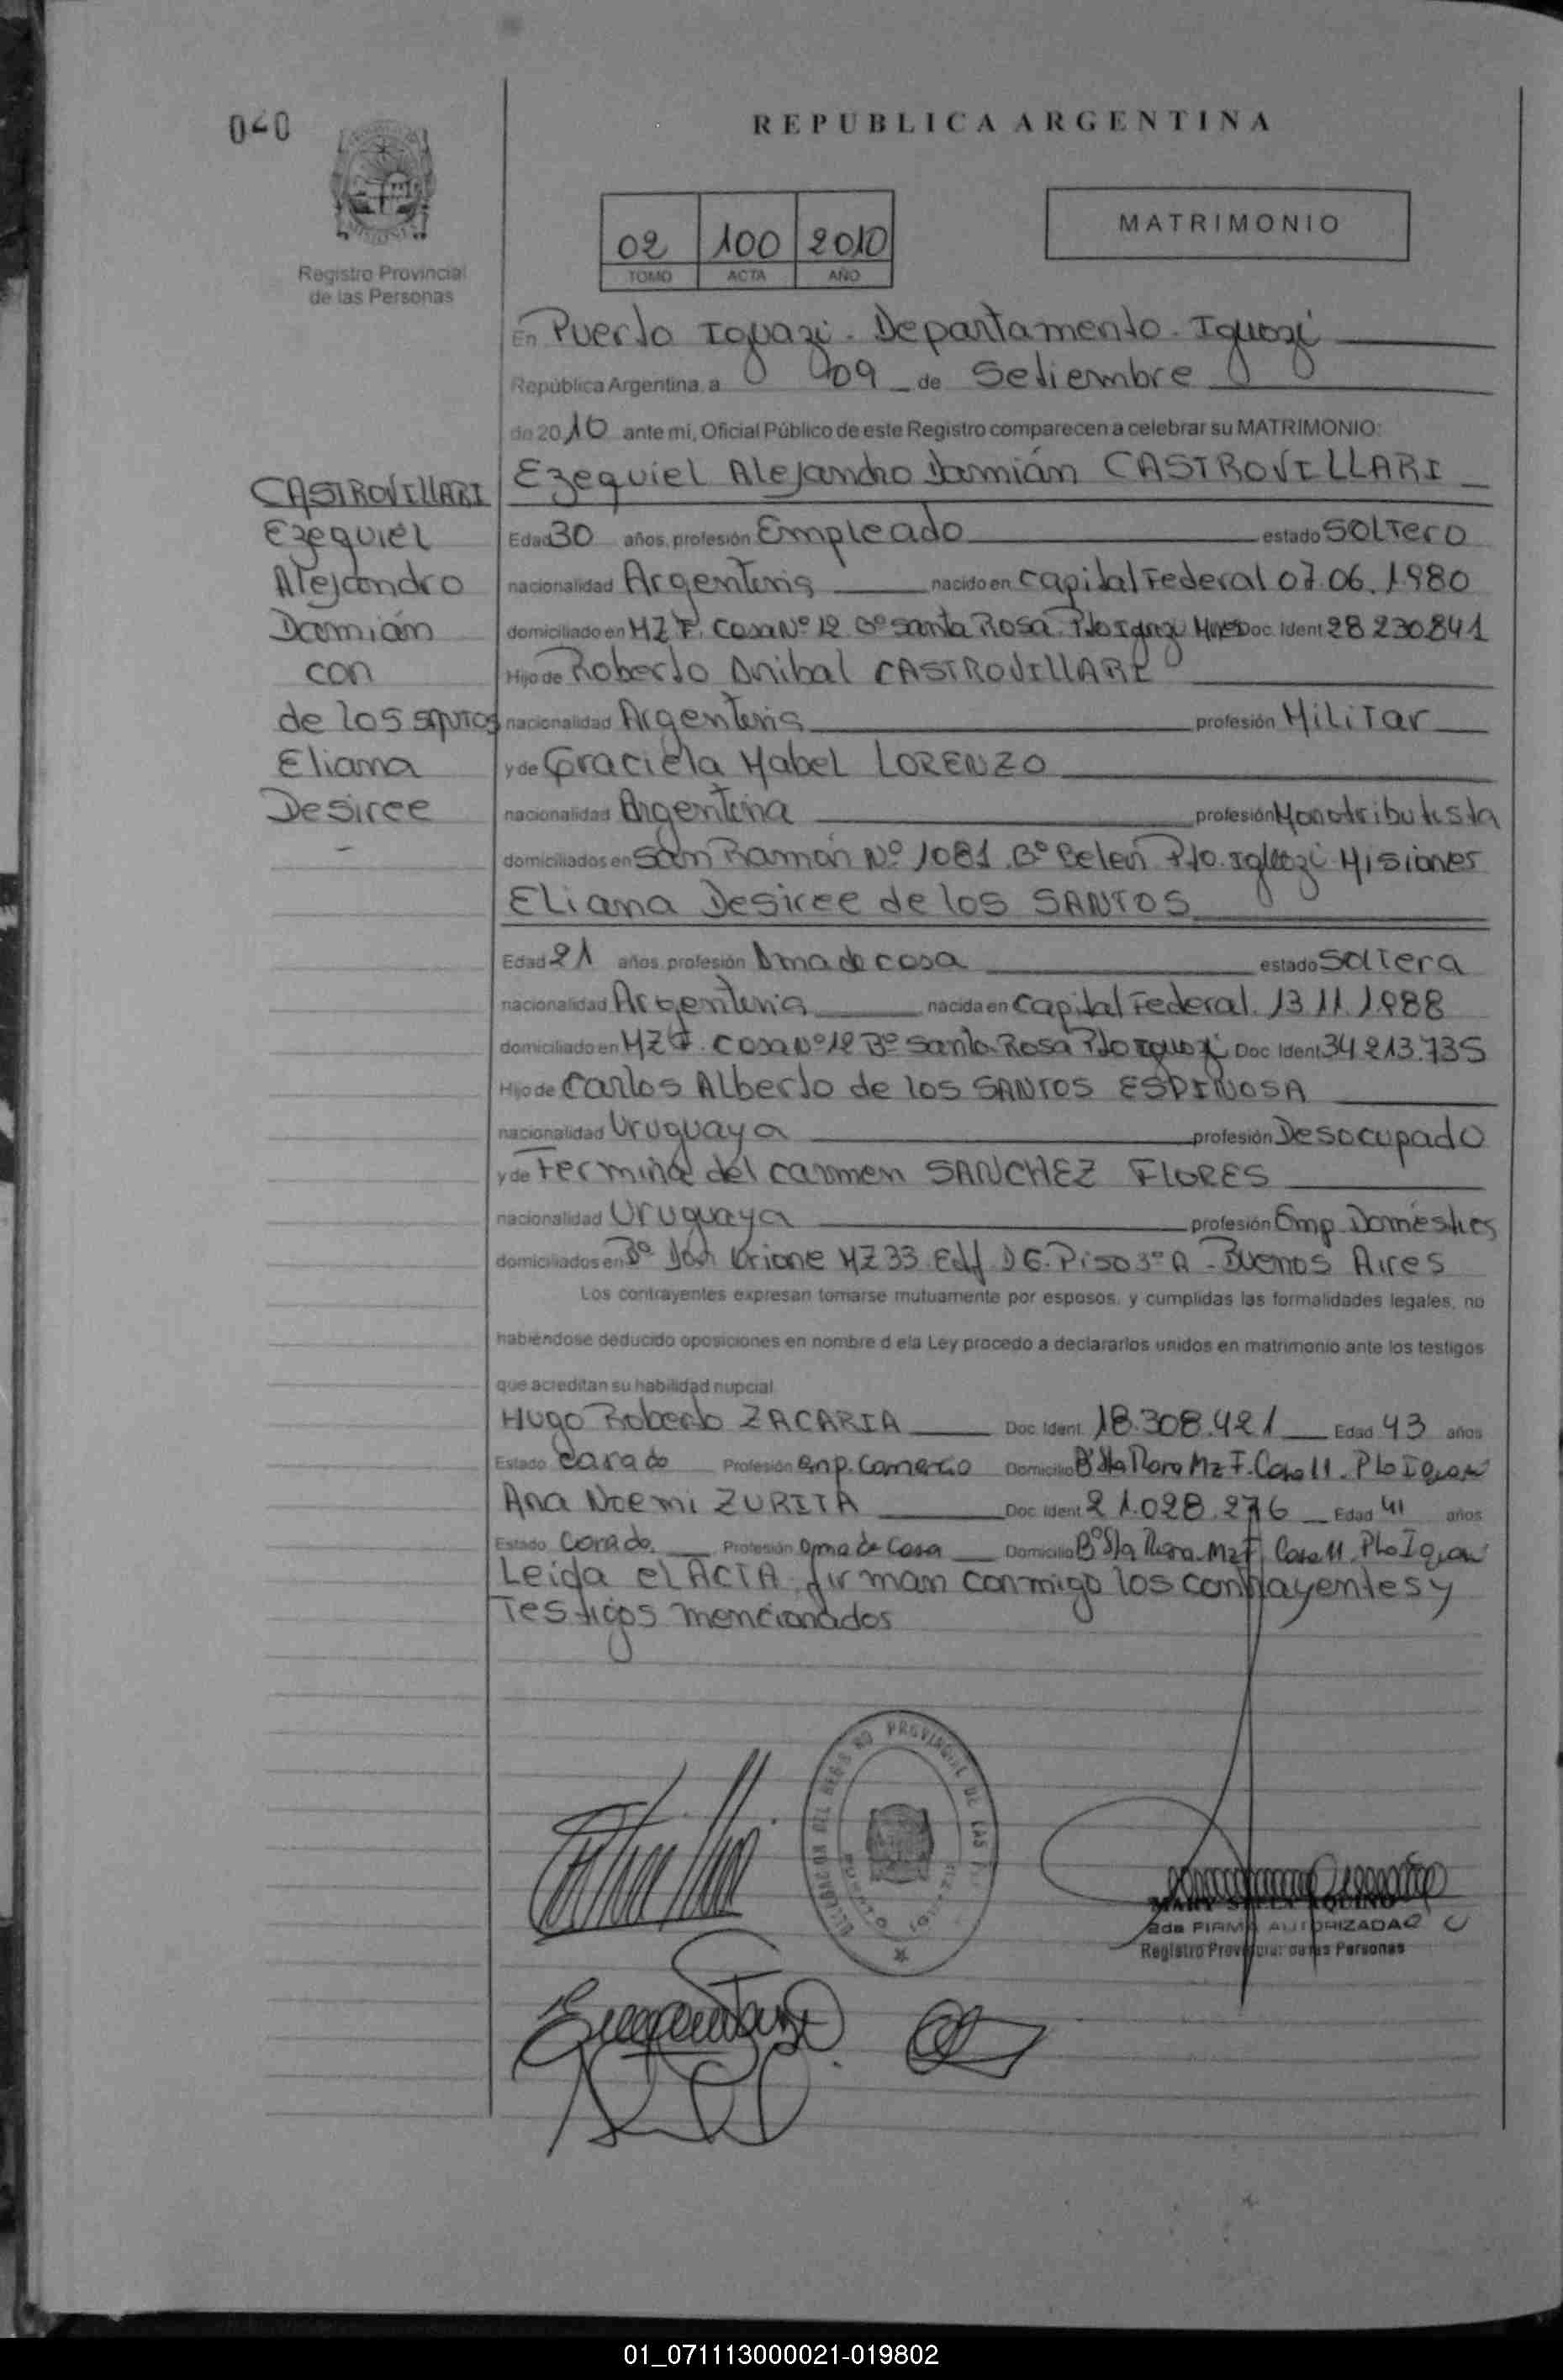 040
REPUBLICA ARGENTINA
Registro Provincial
de las Personas
02 100 2010
TOMO ACTA AÑO
MATRIMONIO
En Puerto Iguazú - Departamento - Iguazú
República Argentina, a 09 de Setiembre
de 2010 ante mi, Oficial Público de este Registro comparecen a celebrar su MATRIMONIO:
Ezequiel Alejandro Damián CASTROVILLARI
CASTROVILLARI
Ezequiel
Alejandro
Damián
con
de los SANTOS
Eliana
Desiree
Edad 30 años, profesión Empleado estado SOLTERO
nacionalidad Argentina nacido en Capital Federal 07.06.1980
domiciliado en MZ F. Casa Nº 12 Bº Santa Rosa. Pto Iguazú Mnes Doc. Ident 28 230.841
Hijo de Roberto Anibal CASTROVILLARI
nacionalidad Argentina profesión Militar
y de Graciela Mabel LORENZO
nacionalidad Argentina profesión Monotributista
domiciliados en San Ramón Nº 1081 Bº Belen Pto. Iguazú Misiones
Eliana Desiree de los SANTOS
Edad 21 años, profesión Ama de casa estado Soltera
nacionalidad Argentina nacida en Capital Federal. 13.11.1988
domiciliado en MZ F. Casa Nº 12 Bº Santa Rosa Pto Iguazú Doc. Ident 34.213.735
Hijo de Carlos Alberto de los SANTOS ESPINOSA
nacionalidad Uruguaya profesión Desocupado
y de Fermina del Carmen SANCHEZ FLORES
nacionalidad Uruguaya profesión Emp. Doméstica
domiciliados en Bº Don Orione MZ 33 Edf D6. Piso 3º A - Buenos Aires
Los contrayentes expresan tomarse mutuamente por esposos, y cumplidas las formalidades legales, no
habiéndose deducido oposiciones en nombre d ela Ley procedo a declararlos unidos en matrimonio ante los testigos
que acreditan su habilidad nupcial
Hugo Roberto ZACARIA Doc. Ident. 18.308.421 Edad 43 años
Estado Casado Profesión Emp. Comercio Domicilio Bº Sta Rosa Mz F. Casa 11. Pto Iguazú
Ana Noemi ZURITA Doc. Ident 21.028.276 Edad 41 años
Estado Casado. Profesión Ama de Casa Domicilio Bº Sta Rosa Mz F Casa 11. Pto Iguazú
Leida el ACTA, firman conmigo los contrayentes y
Testigos mencionados
PROVINCIAL DE LAS
MARY STELLA AQUINO
2da FIRMA AUTORIZADA
Registro Provincial de las Personas
01_071113000021-019802